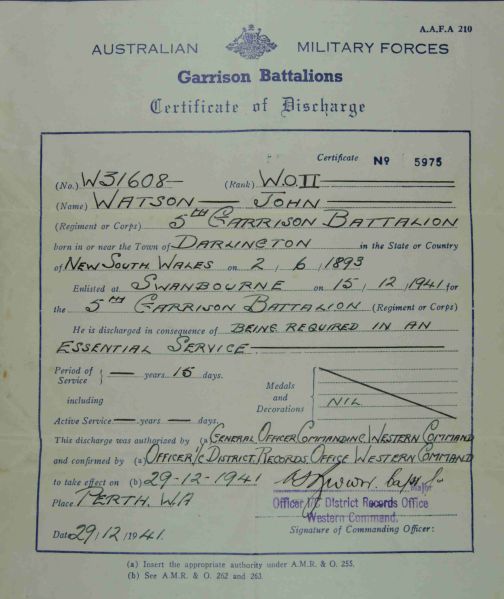 A.A.F.A 210
AUSTRALIAN MILITARY FORCES
Garrison Battalions
Certificate of Discharge
Certificate No 5975
(No.) W31608 (Rank) W.O.II
(Name) WATSON JOHN
(Regiment or Corps) 5TH GARRISON BATTALION
born in or near the Town of DARLINGTON in the State or Country
of NEW SOUTH WALES on 2 / 6 / 1893
Enlisted at SWANBOURNE on 15 / 12 / 1941 for
the 5TH GARRISON BATTALION (Regiment or Corps)
He is discharged in consequence of BEING REQUIRED IN AN
ESSENTIAL SERVICE
Period of Service } — years 15 days.
including
Active Service — years — days.
Medals and Decorations NIL
This discharge was authorized by (a) GENERAL OFFICER COMMANDING WESTERN COMMAND
and confirmed by (a) OFFICER I/C DISTRICT RECORDS OFFICE WESTERN COMMAND
to take effect on (b) 29-12-1941
Major
Place PERTH. W.A
Officer I/C District Records Office
Western Command.
Date 29/12/1941.
Signature of Commanding Officer:
(a) Insert the appropriate authority under A.M.R. & O. 255.
(b) See A.M.R. & O. 262 and 263.